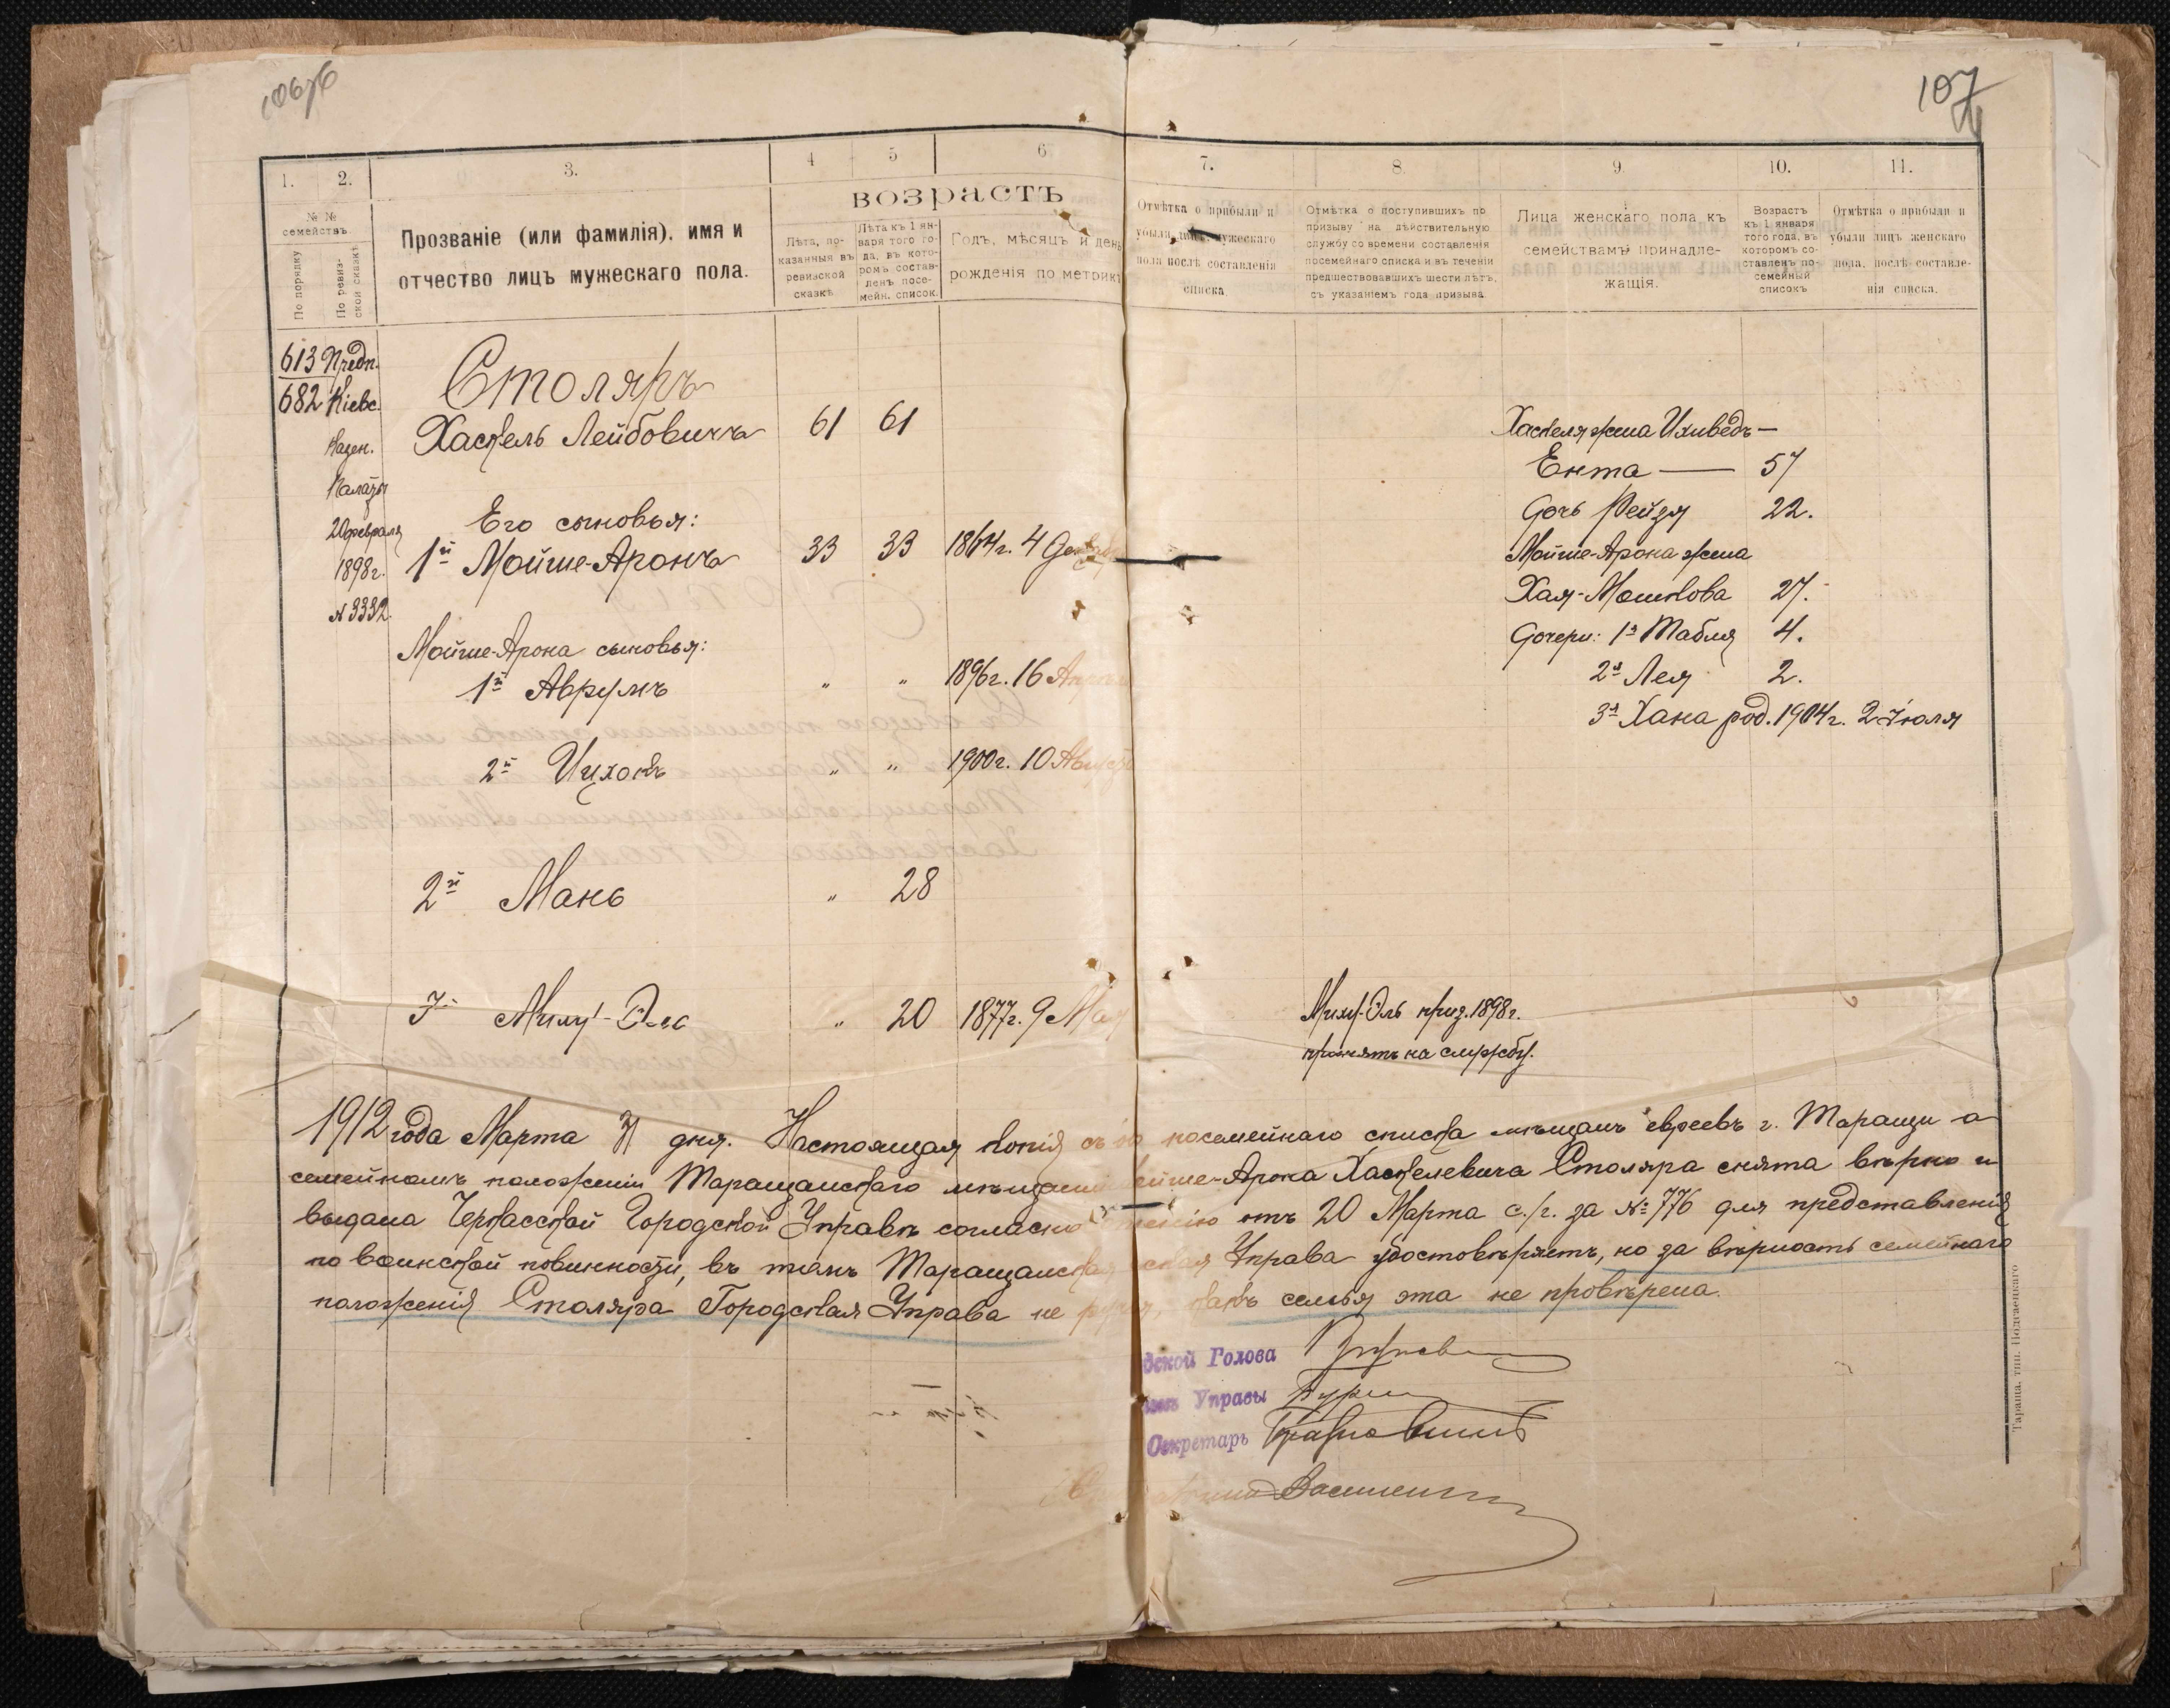 107
1. 2. 3. 4 5 6
№ №
семействъ
По порядку
По ревиз-
ской сказкѣ
Прозваніе (или фамилія), имя и
отчество лицъ мужескаго пола.
возрастъ
Лѣта, по-
казанныя въ
ревизской
сказкѣ
Лѣта къ 1 ян-
варя того го-
да, въ кото-
ромъ состав-
ленъ посе-
мейн. список.
Годъ, мѣсяцъ и день
рожденія по метрик
7. 8. 9. 10. 11.
Отмѣтка о прибыли и
убыли лицъ мужескаго
пола послѣ составленія
списка
Отмѣтка о поступившихъ по
призыву на дѣйствительную
службу со времени составленія
посемейнаго списка и въ теченіи
предшествовавшихъ шести лѣтъ,
съ указаніемъ года призыва.
Лица женскаго пола къ
семействамъ принадле-
жащія.
Возрастъ
къ 1 января
того года, въ
которомъ со-
ставленъ по-
семейный
списокъ
Отмѣтка о прибыли и
убыли лицъ женскаго
пола, послѣ составле-
нія списка.
613 Предп.
682 Кіевс.
Казен.
Палаты
20 февраля
1898г.
№ 3332.
Столяръ
Хаскель Лейбовичъ 61 61
Его сыновья:
1й Мойше-Аронъ 33 33 1864г. 4 Декабр
Мойше-Арона сыновья:
1й Аврумъ " " 1896г. 16 Апрѣля
2й Ицхокъ " " 1900г. 10 Августа
2й Мань " 28
3й " 20 1877г. 9 Мая
Хаскеля жена Ихиведъ —
Ента — 57
Дочь Рейзя 22.
Мойше-Арона жена
Хая-Мошкова 27.
Дочери: 1я Табля 4.
2я Лея 2.
3я Хана род. 1904г. 2 Іюля
приз. 1898г.
принятъ на службу.
1912 года Марта дня. Настоящая копія съ посемейнаго списка мѣщанъ евреевъ г. Таращи о
семейномъ положеніи Таращанскаго мѣщанина Мойше-Арона Хаскелевича Столяра снята вѣрно и
выдана Черкасской Городской Управѣ согласно отъ 20 Марта с./г. за № 776 для представленія
по воинской повинности, въ томъ Таращанская Управа удостовѣряетъ, но за вѣрность семейнаго
положенія Столяра Городская Управа не какъ семья эта не провѣрена.
дской Голова
Управы
Секретарь
Василен
Тараща. тип. Подгаецкаго